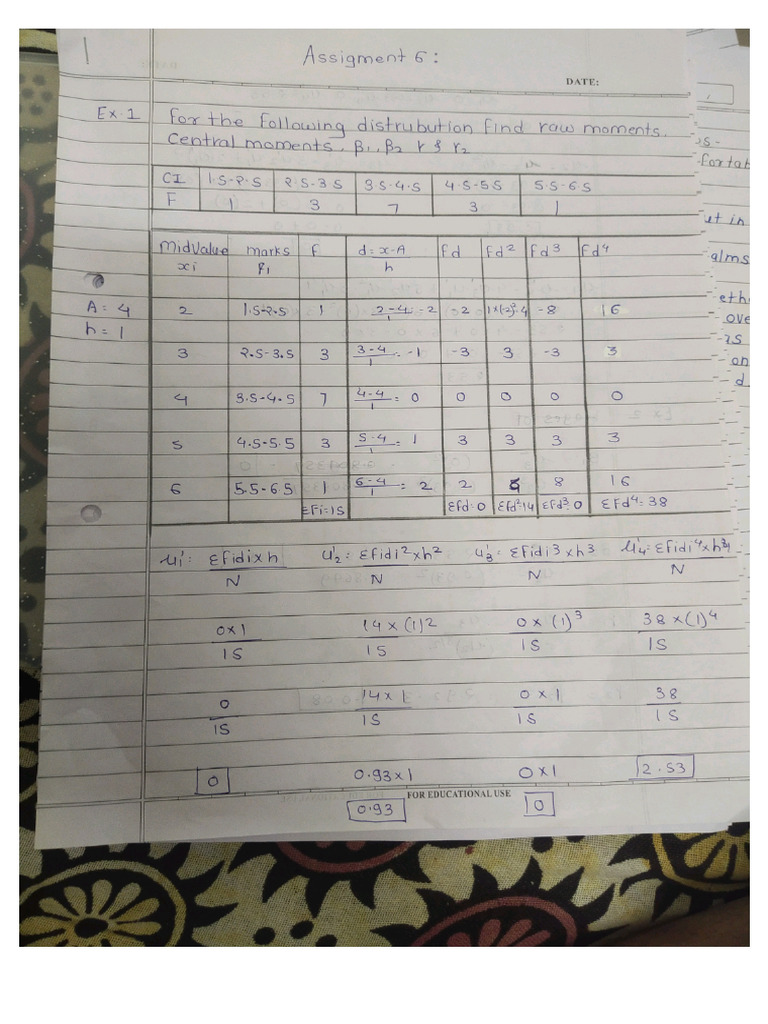 1
Assigment 6:
DATE:
Ex.1 For the following distrubution find raw moments,
Central moments, β1, β2 r & r2
CI 1.5-2.5 2.5-3.5 3.5-4.5 4.5-5.5 5.5-6.5
F 1 3 7 3 1
MidValue marks f d = x-A fd fd2 fd3 fd4
xi h
A = 4
h = 1
2 1.5-2.5 1 2-4 = 2 02 1×(-2)2=4 -8 16
3 2.5-3.5 3 3-4/1 = -1 -3 3 -3 3
4 3.5-4.5 7 4-4/1 = 0 0 0 0 0
5 4.5-5.5 3 5-4/1 = 1 3 3 3 3
6 5.5-6.5 1 6-4/1 = 2 2 8 16
Σfi=15 Σfd=0 Σfd2=14 Σfd3=0 Σfd4=38
μ1' = Σfidi×h μ2' = Σfidi2×h2 μ3' = Σfidi3×h3 μ4' = Σfidi4×h
N N N N
0×1 14×(1)2 0×(1)3 38×(1)4
15 15 15 15
0 14×1 0×1 38
15 15 15 15
0 0.93×1 0×1 2.53
0.93 FOR EDUCATIONAL USE 0